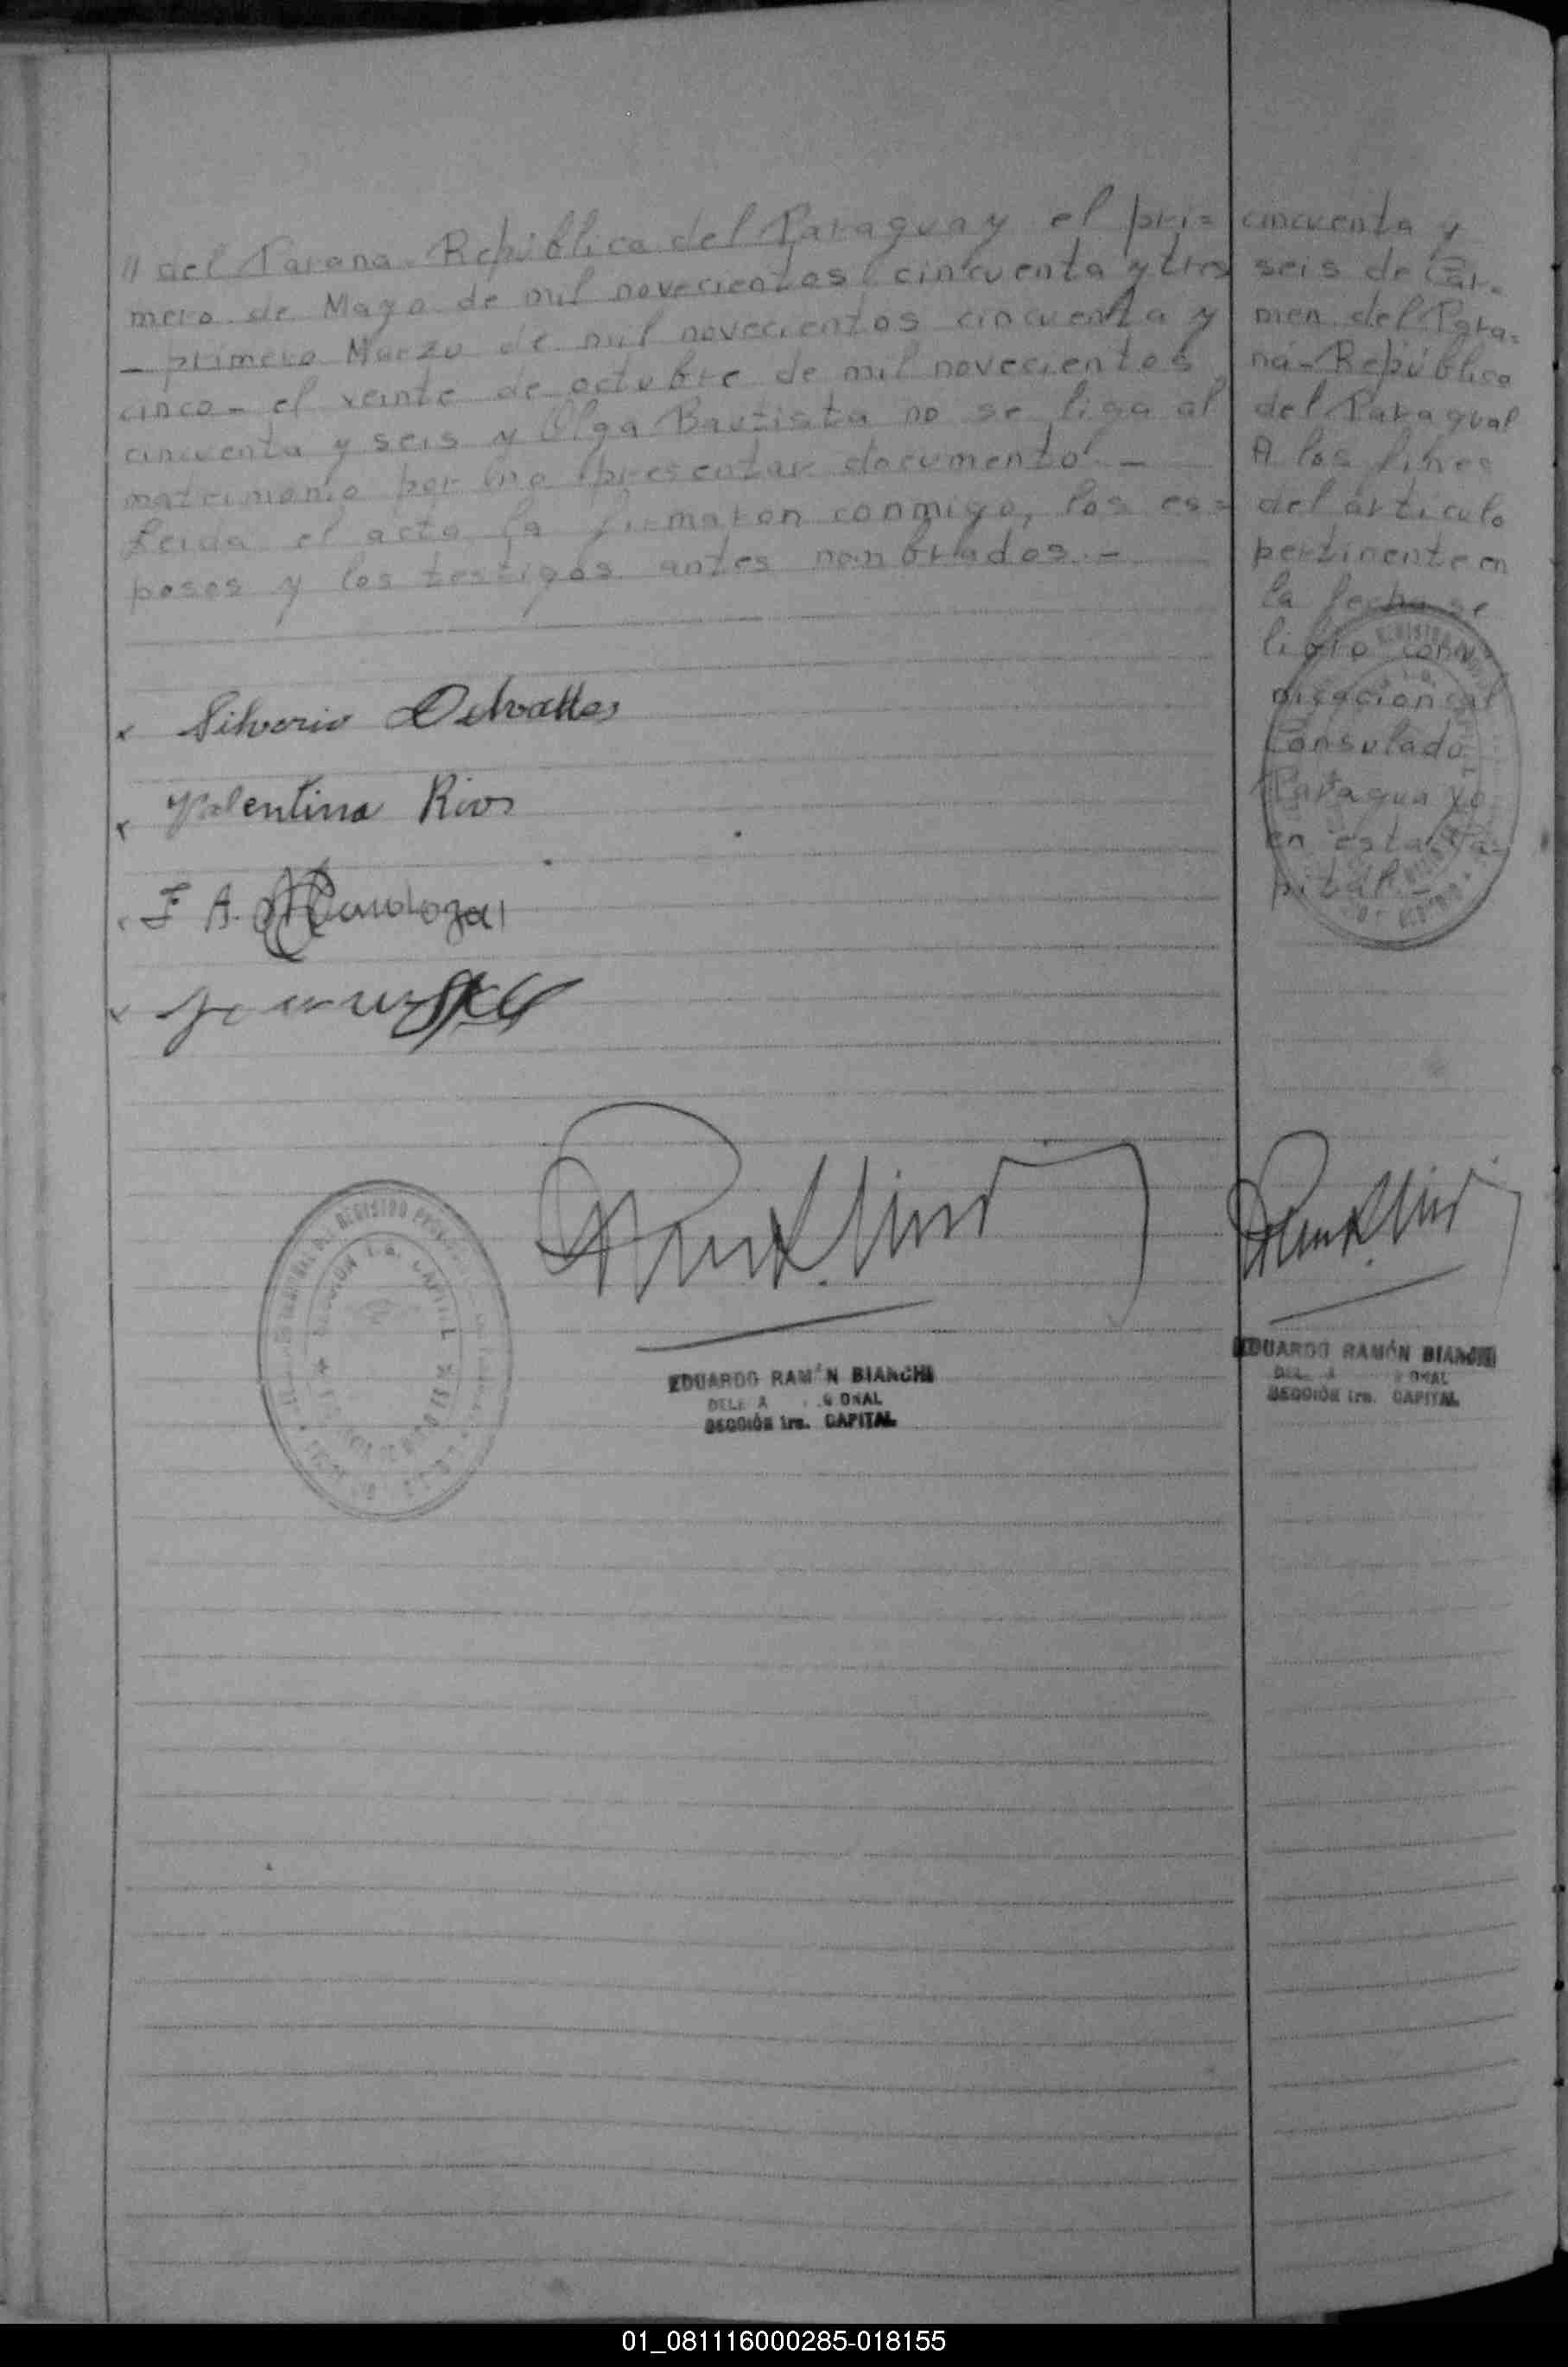 // del Parana. República del Paraguay el pri=
mero de Mayo de mil novecientos cincuenta y tres
- primero Marzo de mil novecientos cincuenta y
cinco - el veinte de octubre de mil novecientos
cincuenta y seis y Olga Bautista no se liga al
matrimonio por no presentar documento. -
Leida el acta la firmaron conmigo, los es=
posos y los testigos antes nombrados. -
Silverio Delvalles
Valentina Rios
F A.
EDUARDO RAMÓN BIANCHI
SECCIÓN 1ra. CAPITAL
REGISTRO
SECCION 1a. CAPITAL
cincuenta y
seis de Car=
men del Para=
ná - República
del Paraguai
A los fines
del articulo
pertinente en
la fecha se
libro comu
nicacion al
Consulado
Paraguayo
en esta Ca=
pital. -
REGISTRO
EDUARDO RAMÓN BIANCHI
SECCIÓN 1ra. CAPITAL
01_081116000285-018155